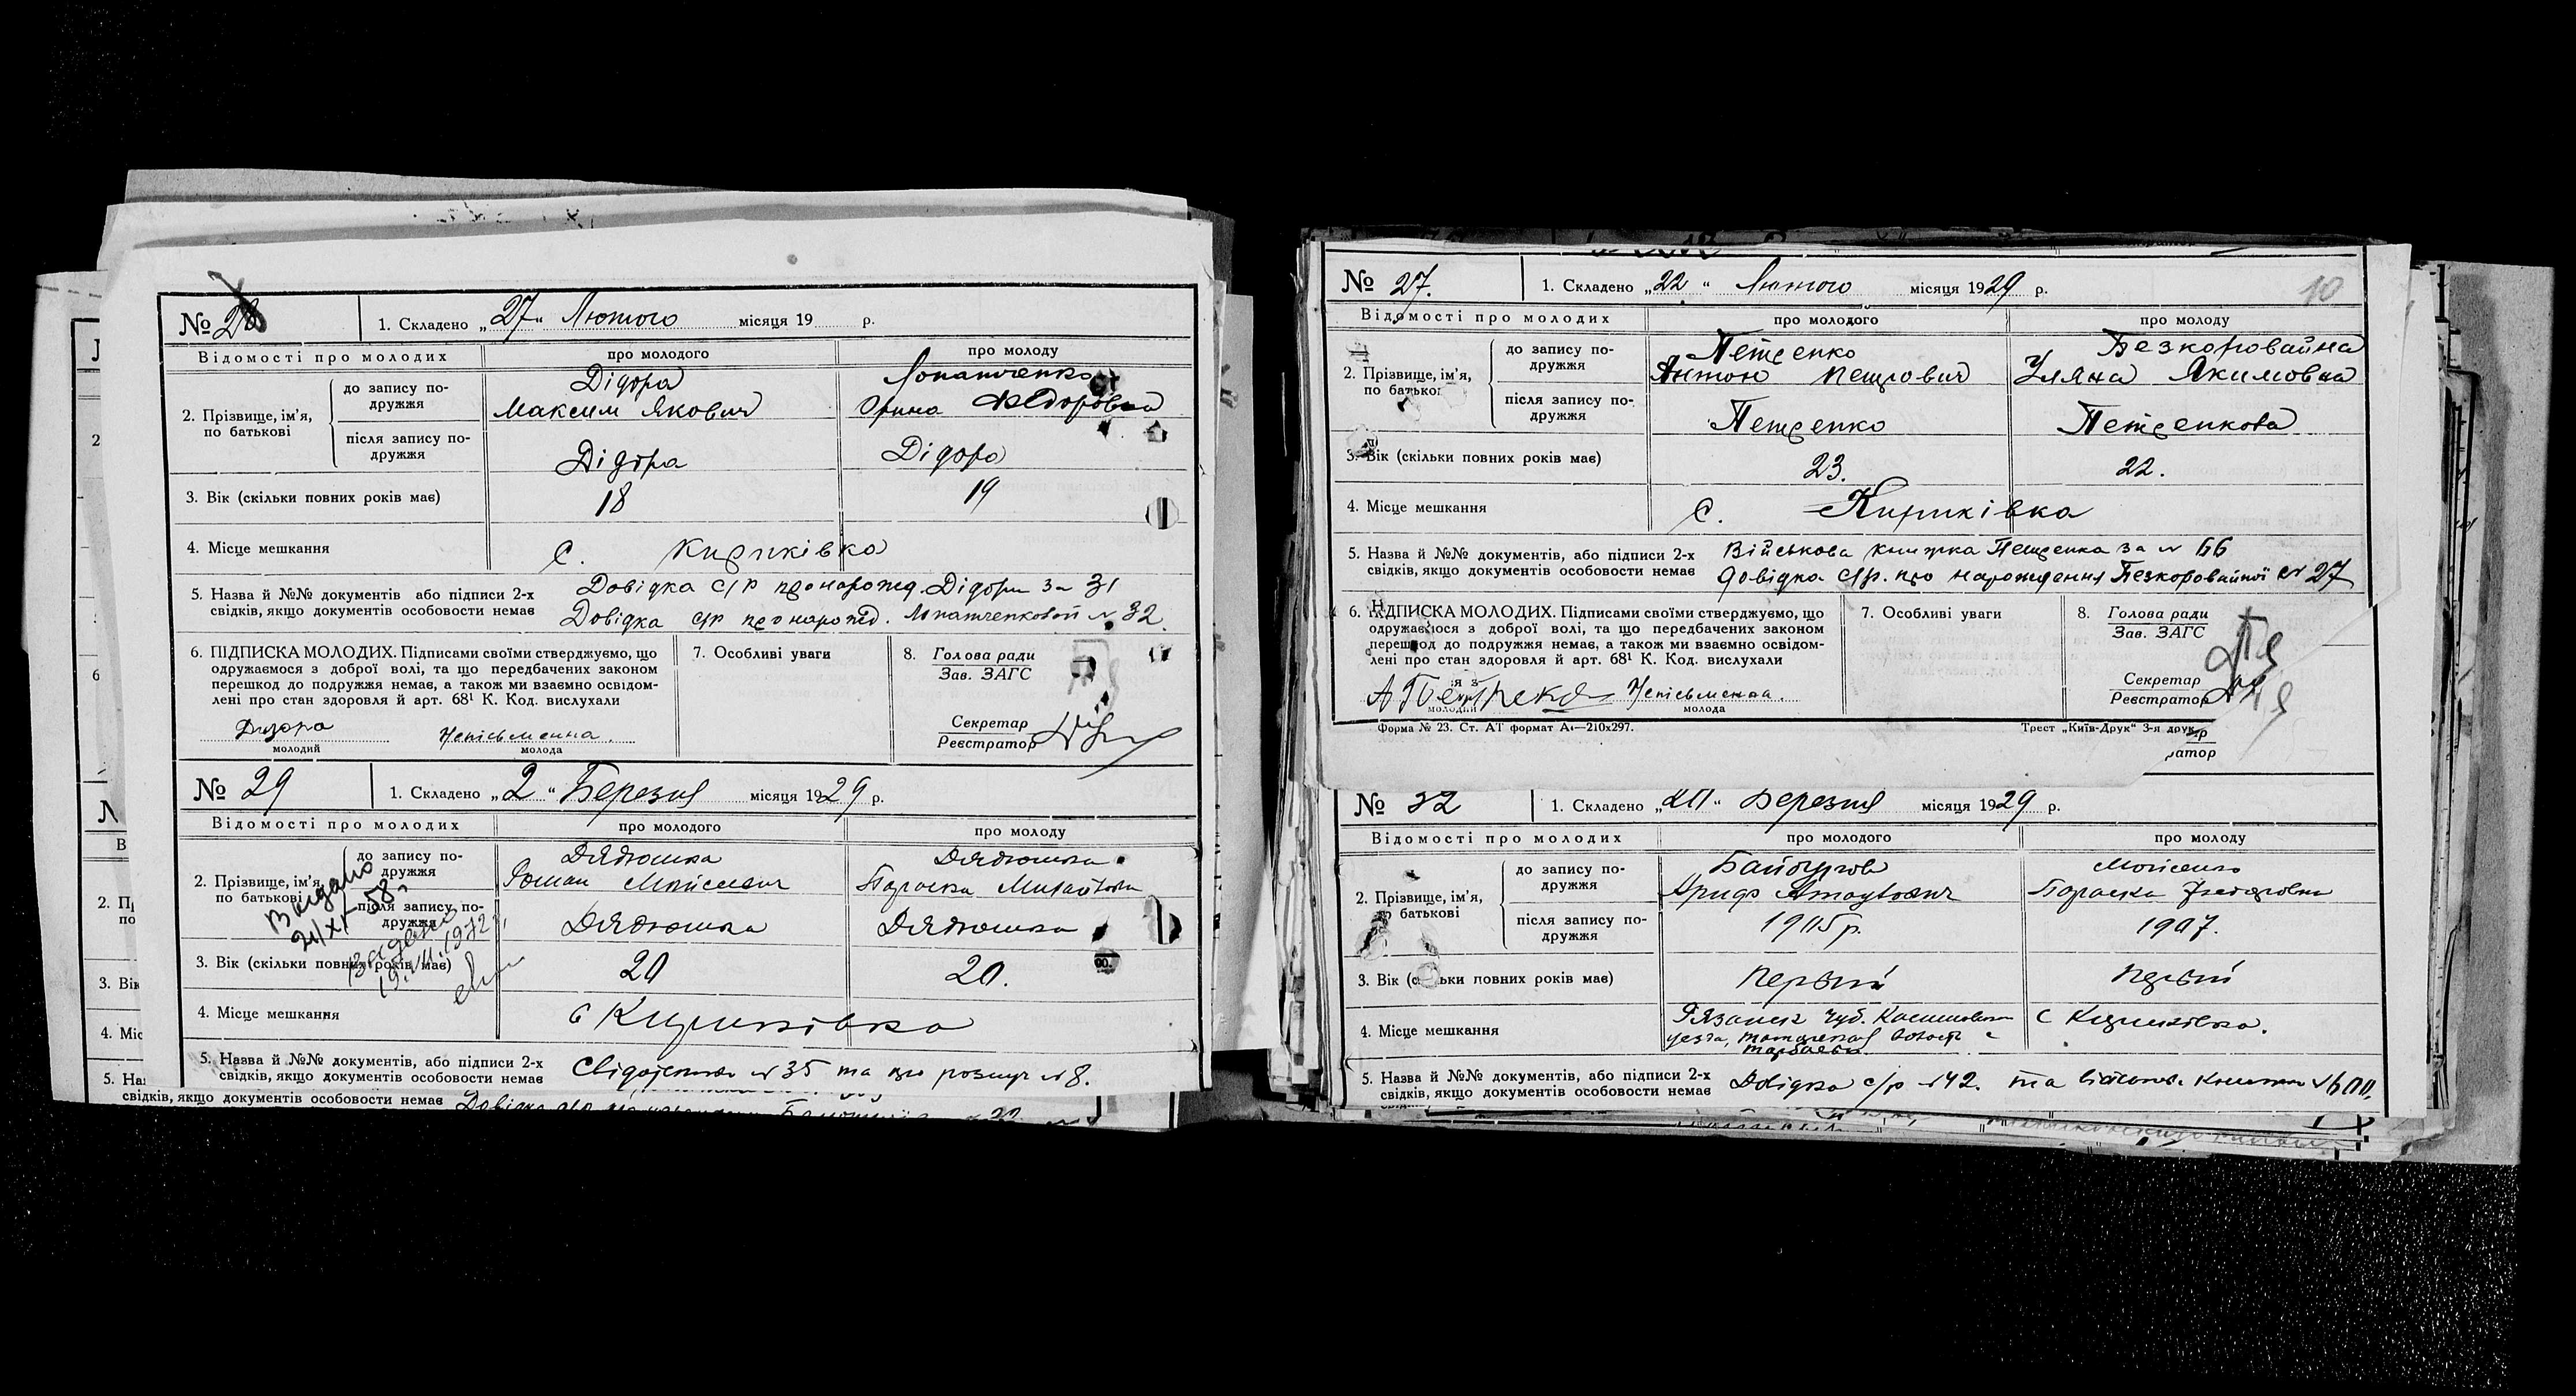 № 28
1. Складено „27“ Лютого місяця 19 р.
Відомості про молодих про молодого про молоду
2. Прізвище, ім’я, по батькові
до запису подружжя
Дідора Лопатченко
Максим Якович Орина Федоровна
після запису подружжя
Дідора Дідора
3. Вік (скільки повних років має) 18 19
4. Місце мешкання с. Кириківка
5. Назва й №№ документів або підписи 2-х Довідка с/р про нарожд. Дідори за 31
свідків, якщо документів особовости немає Довідка с/р про нарожд. Лопатченковой № 32.
6. ПІДПИСКА МОЛОДИХ. Підписами своїми стверджуємо, що
одружаємося з доброї волі, та що передбачених законом
перешкод до подружжя немає, а також ми взаємно освідом-
лені про стан здоровля й арт. 68¹ К. Код. вислухали
Дидора Неписьменна.
молодий молода
7. Особливі уваги
8. Голова ради
Зав. ЗАГС
Секретар
Реєстратор
№ 29
1. Складено „2“ Березня місяця 1929 р.
Відомості про молодих про молодого про молоду
2. Прізвище, ім’я, по батькові
до запису подружжя
Дядюшка Дядюшка
Роман Мойсеевич Параска
після запису подружжя
Дядюшка Дядюшка
Видано
21/XI-58
Видано
1972
3. Вік (скільки повних років має) 20 20.
4. Місце мешкання с Кириківка
5. Назва й №№ документів, або підписи 2-х
свідків, якщо документів особовости немає № 35 та про розлуч № 8.
свідків, якщо документів особовости немає
№ 27.
1. Складено „22“ Лютого місяця 1929 р.
10
Відомості про молодих про молодого про молоду
2. Прізвище, ім’я,
по батькові
до запису подружжя
Петренко Безкоровайна
Антон Петрович Уляна Якимовна
після запису подружжя
Петренко Петренкова
3. Вік (скільки повних років має) 23. 22.
4. Місце мешкання с. Кириківка
5. Назва й №№ документів, або підписи 2-х Військова книжка Петренка за № 66
свідків, якщо документів особовости немає довідка с/р. про нарождения Безкоровайної № 27
6. ПІДПИСКА МОЛОДИХ. Підписами своїми стверджуємо, що
одружаємося з доброї волі, та що передбачених законом
перешкод до подружжя немає, а також ми взаємно освідом-
лені про стан здоровля й арт. 68¹ К. Код. вислухали
Неписьменна.
молодий молода
7. Особливі уваги
8. Голова ради
Зав. ЗАГС
Секретар
Реєстратор
Форма № 23. Ст. АТ формат А₄—210х297.
Трест „Київ-Друк“ 3-я друк.
№ 32
1. Складено Березня місяця 1929 р.
Відомості про молодих про молодого про молоду
2. Прізвище, ім’я,
по батькові
до запису подружжя
Мойсенко
Ариф Параска
після запису подружжя
1905 р. 1907.
3. Вік (скільки повних років має) первый первый
4. Місце мешкання
Рязанск губ. с Кириківка.
5. Назва й №№ документів, або підписи 2-х
свідків, якщо документів особовости немає Довідка с/р № 42. та № 600.